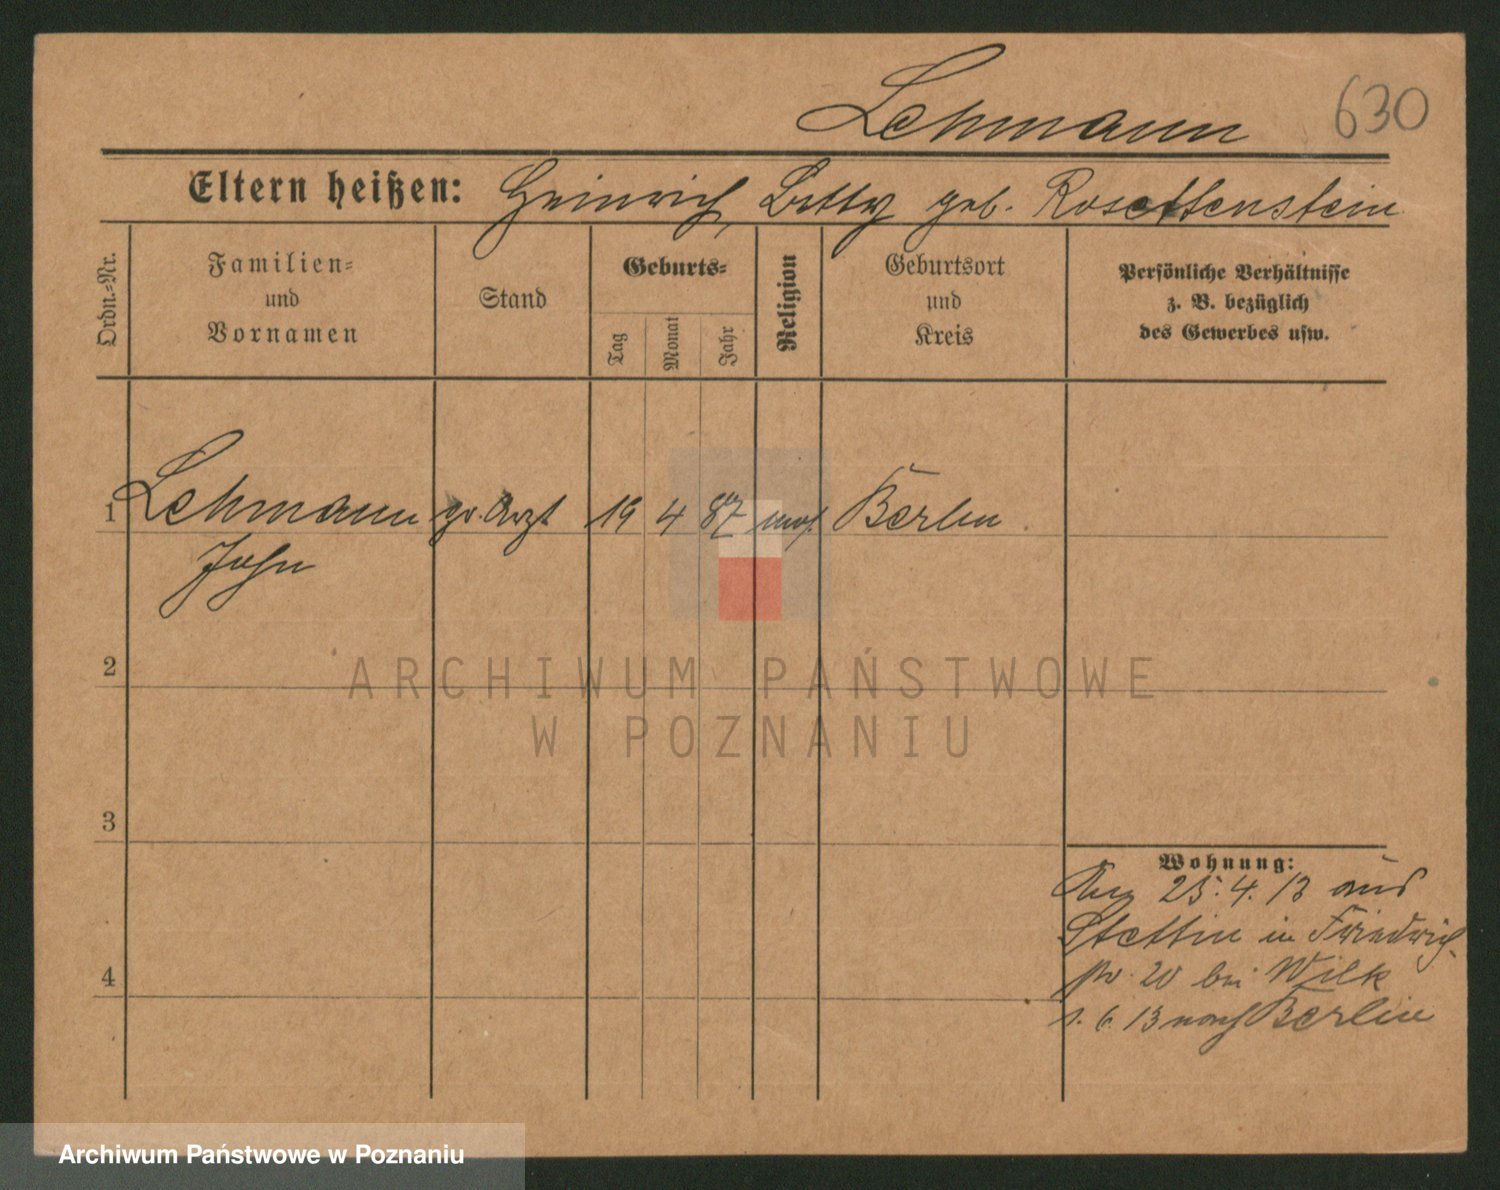 Lehmann 630
Eltern heißen: Heinrich, Betty geb. Rosettenstein
Ordn.=Nr.
Familien=
und
Vornamen
Stand
Geburts=
Tag
Monat
Jahr
Religion
Geburtsort
und
Kreis
Persönliche Verhältnisse
z. B. bezüglich
des Gewerbes usw.
1 Lehmann pr. Arzt 19 4 87 mos. Berlin
John
ARCHIWUM PAŃSTWOWE
W POZNANIU
2
3
4
Wohnung:
25. 4. 13 aus
Stettin in Friedrich
str. 20 bei Wilk
1. 6. 13 nach Berlin
Archiwum Państwowe w Poznaniu